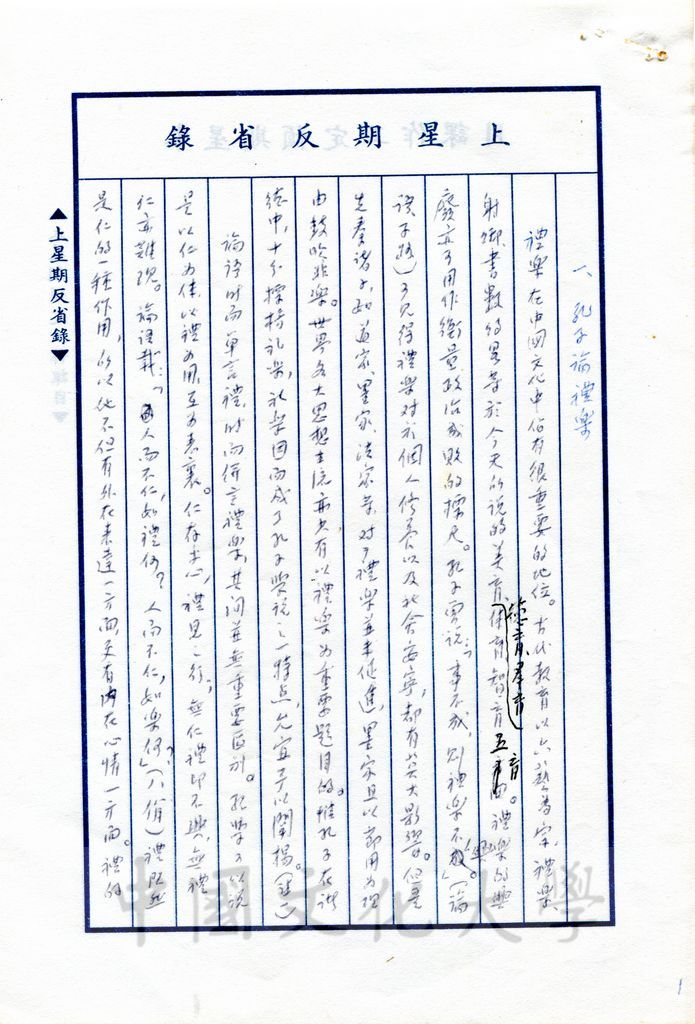 上星期反省錄
一、孔子論禮樂
禮樂在中國文化中佔有很重要的地位。古代教育以六藝為宗，禮樂、
射御書數的男等於今天所說的美育、體育、智育、德育、群育五育。禮樂的興
廢亦可用作衡量政治成敗的標尺。孔子曾說：「事不成，則禮樂不興」（論
語子路）可見得禮樂對於個人修養以及社會安寧，都有莫大影響。但是
先秦諸子，如道家、墨家、法家等，對于禮樂並未促進，墨家且以節用為理
由鼓吹非樂。世界各大思想主流亦少有以禮樂為重要題目的。惟孔子在談
話中，十分標榜礼樂，礼樂因而成了孔子學說之一特点，允宜予以闡揚。（註一）
論語時而單言禮，時而併言禮樂，其间並無重要區別。孔學可以說
是以仁為体，以禮為用，互為表裏。仁存于心，禮見之行，無仁禮即不興，無禮
仁亦難現。論語載：「人而不仁，如禮何？人而不仁，如樂何？」（八佾）禮既然
是仁的一種作用，所以她不但有外在表達一方面，更有內在心情一方面。禮的
▲上星期反省錄▼
中國文化大學
1